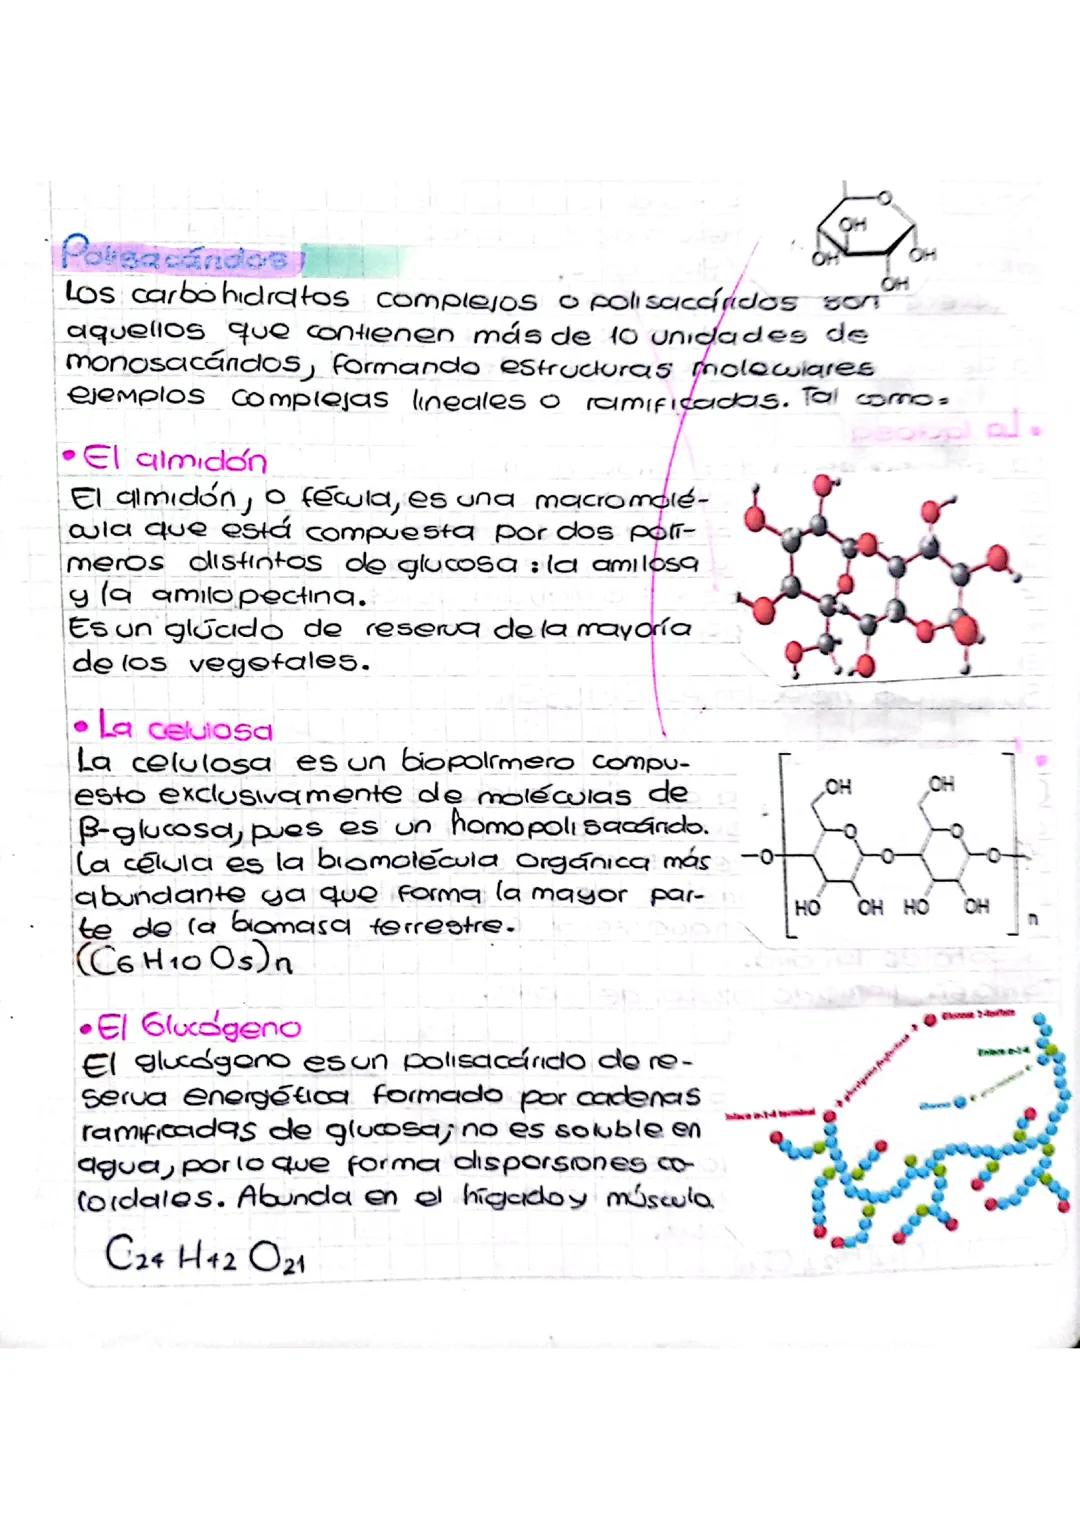 Polisacáridos
Los carbohidratos complejos o polisacáridos son
aquellos que contienen más de 10 unidades de
monosacáridos, formando estructuras moleculares
ejemplos complejas lineales o ramificadas. Tal como:
OH
OH
OH
OH
• El almidón
El almidón, o fécula, es una macromolé-
cula que está compuesta por dos polí-
meros distintos de glucosa: la amilosa
y la amilopectina.
Es un glúcido de reserva de la mayoría
de los vegetales.
• La celulosa
La celulosa es un biopolímero compu-
esto exclusivamente de moléculas de
β-glucosa, pues es un homopolisacárido.
La célula es la biomolécula orgánica más
abundante ya que forma la mayor par-
te de la biomasa terrestre.
(C6 H10 O5)n
OH
OH
O
O
O
O
O
HO
OH
HO
OH
n
• El Glucógeno
El glucógeno es un polisacárido de re-
serva energética formado por cadenas
ramificadas de glucosa; no es soluble en
agua, por lo que forma dispersiones co-
loidales. Abunda en el hígado y músculo.
C24 H42 O21